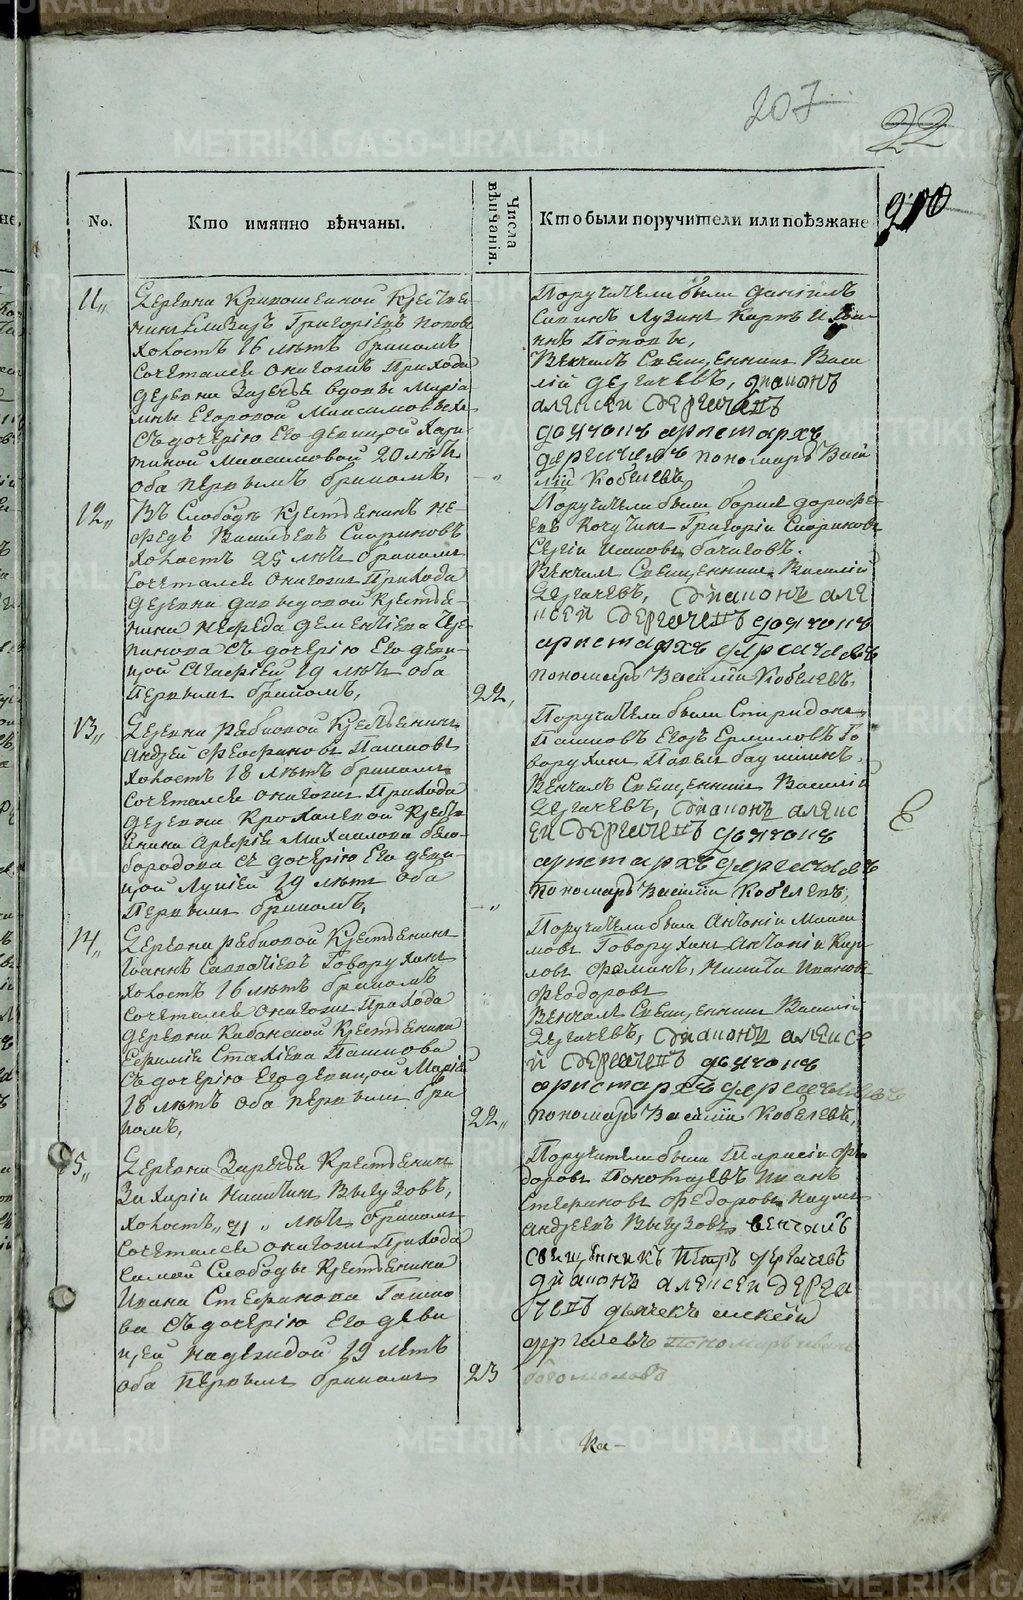 207
22
210
No.
Кто имянно вѣнчаны.
Числа вѣнчанія.
Кто были поручители или поѣзжане
11„
Деревни Кривошеиной Крестья
нинъ Елизаръ Григорьевъ Поповъ
холостъ 16 лѣтъ бракомъ
сочетался онагожъ Прихода
деревни Зарѣчья вдовы Марiа
мны Егоровой Максимовыхъ
съ дочерiю Его девицой Хари
тиной Максимовой 20 лѣтъ
оба первымъ бракомъ,
—„
Поручители были Данiилъ
Савинъ Лузинъ Карпъ и Ива
нъ Поповы,
Вѣнчалъ Священникъ Васи
лiй Дергачевъ, Дiаконъ
алексей Дергачевъ
дьячокъ аристархъ
дергачевъ пономарь Васи
лiй Кобелевъ
12„
Въ Слободѣ Крестьенинъ Не
федъ Васильевъ Скориковъ
холостъ 25 лѣтъ бракомъ
сочетался онагожъ Прихода
деревни Давыдовой Крестье
нина Нефеда Дементьева Че
пикова съ дочерiю Его деви
цой Агафiей 19 лѣтъ оба
первымъ бракомъ,
22,
Поручители были борисъ дорофе
евъ Кочугинъ Григорiй Скориковъ
Сергiй Исаковъ бачиговъ.
Вѣнчалъ Священникъ Василiй
Дергачевъ, Дiаконъ але
ксей Дергачевъ дьячокъ
аристархъ дергачевъ
пономарь Василiй Кобелевъ
13„
Деревни рябковой Крестьенинъ
андрей Феофиновъ Пашковъ
холостъ 18 лѣтъ бракомъ
сочетался онагожъ Прихода
деревни Крохалевой Кресть
янина арефiя Михаилова бело
бородова съ дочерiю Его деви
цой Лукiей 19 лѣтъ оба
Первымъ бракомъ,
—„
Поручители были Спиридонъ
Пашковъ Егоръ Ермиловъ Го
ворухинъ Павелъ баушкинъ,
Вѣнчалъ Священникъ Василiй
Дергачевъ, Дiаконъ алекс
ей Дергачевъ дьячокъ
аристархъ дергачевъ
пономарь Василiй Кобелевъ,
14„
Деревни рябковой Крестьенинъ
Iоаннъ Савватiевъ Говорухинъ
холостъ 16 лѣтъ бракомъ
сочетался онагожъ Прихода
деревни Кабанской Крестьенина
Ефимiя Стахiева Пашкова
съ дочерiю Его девицой Марiей
18 лѣтъ оба первымъ бра
комъ,
22„
Поручители были Антонiй Макси
мовъ Говорухинъ антонiй Кири
ловъ Фоминъ, Никита Ивановъ
Феодоровъ
Вѣнчалъ Священникъ Василiй
Дергачевъ, Дiаконъ алексе
й Дергачевъ дьячокъ
аристархъ дергачевъ
пономарь Василiй Кобелевъ,
15„
Деревни Зарѣчья Крестьенинъ
Захарiй Никитинъ Выгузовъ,
холостъ „21„ лѣтъ бракомъ
сочетался онагожъ Прихода
самой Слободы Крестьенина
Ивана Стефанова Пашко
ва съ дочерiю Его деви
цей Надеждой 19 лѣтъ
оба первымъ бракомъ
23
Поручители были Тарасiй Фе
доровъ Иванъ
Стефановъ Федоровъ Наумъ
андреевъ Выгузовъ венчалъ
священникъ Петръ дергачевъ
дiаконъ алексей дерга
чевъ дьячекъ алексiй
дергачевъ пономарь иванъ
богомоловъ
Ка-
METRIKI.GASO-URAL.RU